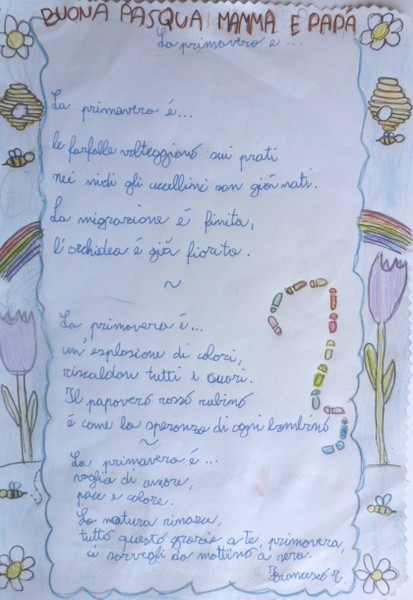 BUONA PASQUA MAMMA E PAPÁ
La primavera è...
La primavera é...
le farfalle volteggiano sui prati
nei nidi gli uccellini son giá nati.
La migrazione é finita,
l'orchidea é giá fiorita.
~
La primavera é...
un'esplosione di colori,
riscaldan tutti i cuori.
Il papavero rosso rubino
é come la speranza di ogni bambino
~
La primavera é...
voglia di amore,
pace e calore.
La natura rinasce,
tutto questo grazie a te, primavera,
ci sorregli da mattina a sera.
Francesco